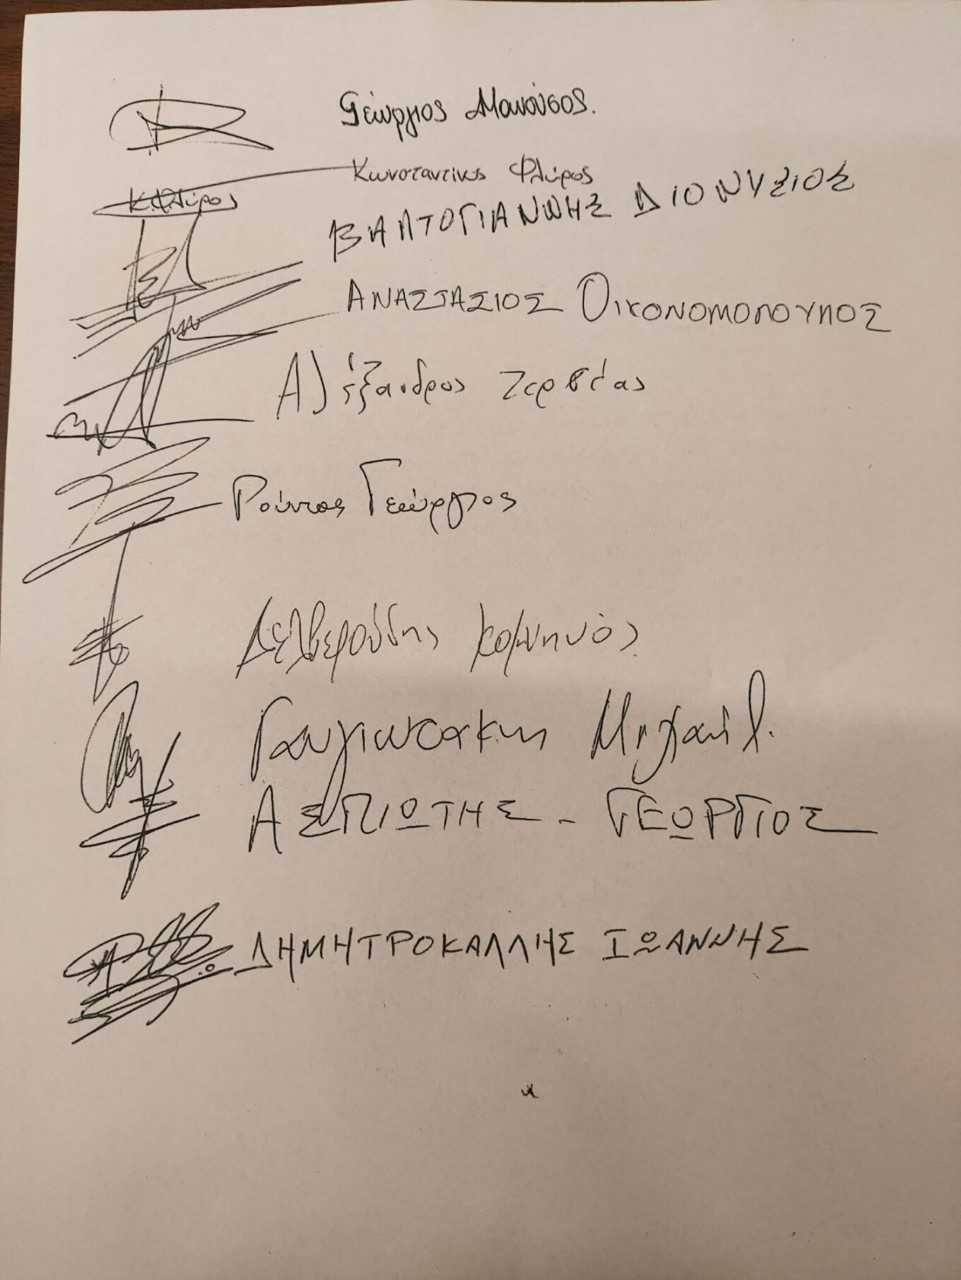 Γεώργιος Μανούσος.
Κωνσταντίνος Φλύρος
Κ.Φλύρος
ΒΑΛΤΟΓΙΑΝΝΗΣ ΔΙΟΝΥΣΙΟΣ
ΑΝΑΣΤΑΣΙΟΣ ΟΙΚΟΝΟΜΟΠΟΥΛΟΣ
Αλέξανδρος Ζερβέας
Ρούντος Γεώργιος
Δελβερούδης Κομνηνός
Γαυγιωτάκης Μιχαήλ.
ΑΣΠΙΩΤΗΣ - ΓΕΩΡΓΙΟΣ
ΔΗΜΗΤΡΟΚΑΛΛΗΣ ΙΩΑΝΝΗΣ